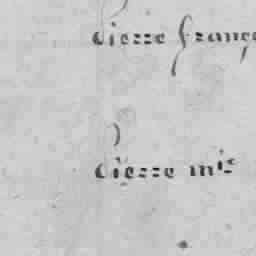 pierre franç
pierre mis